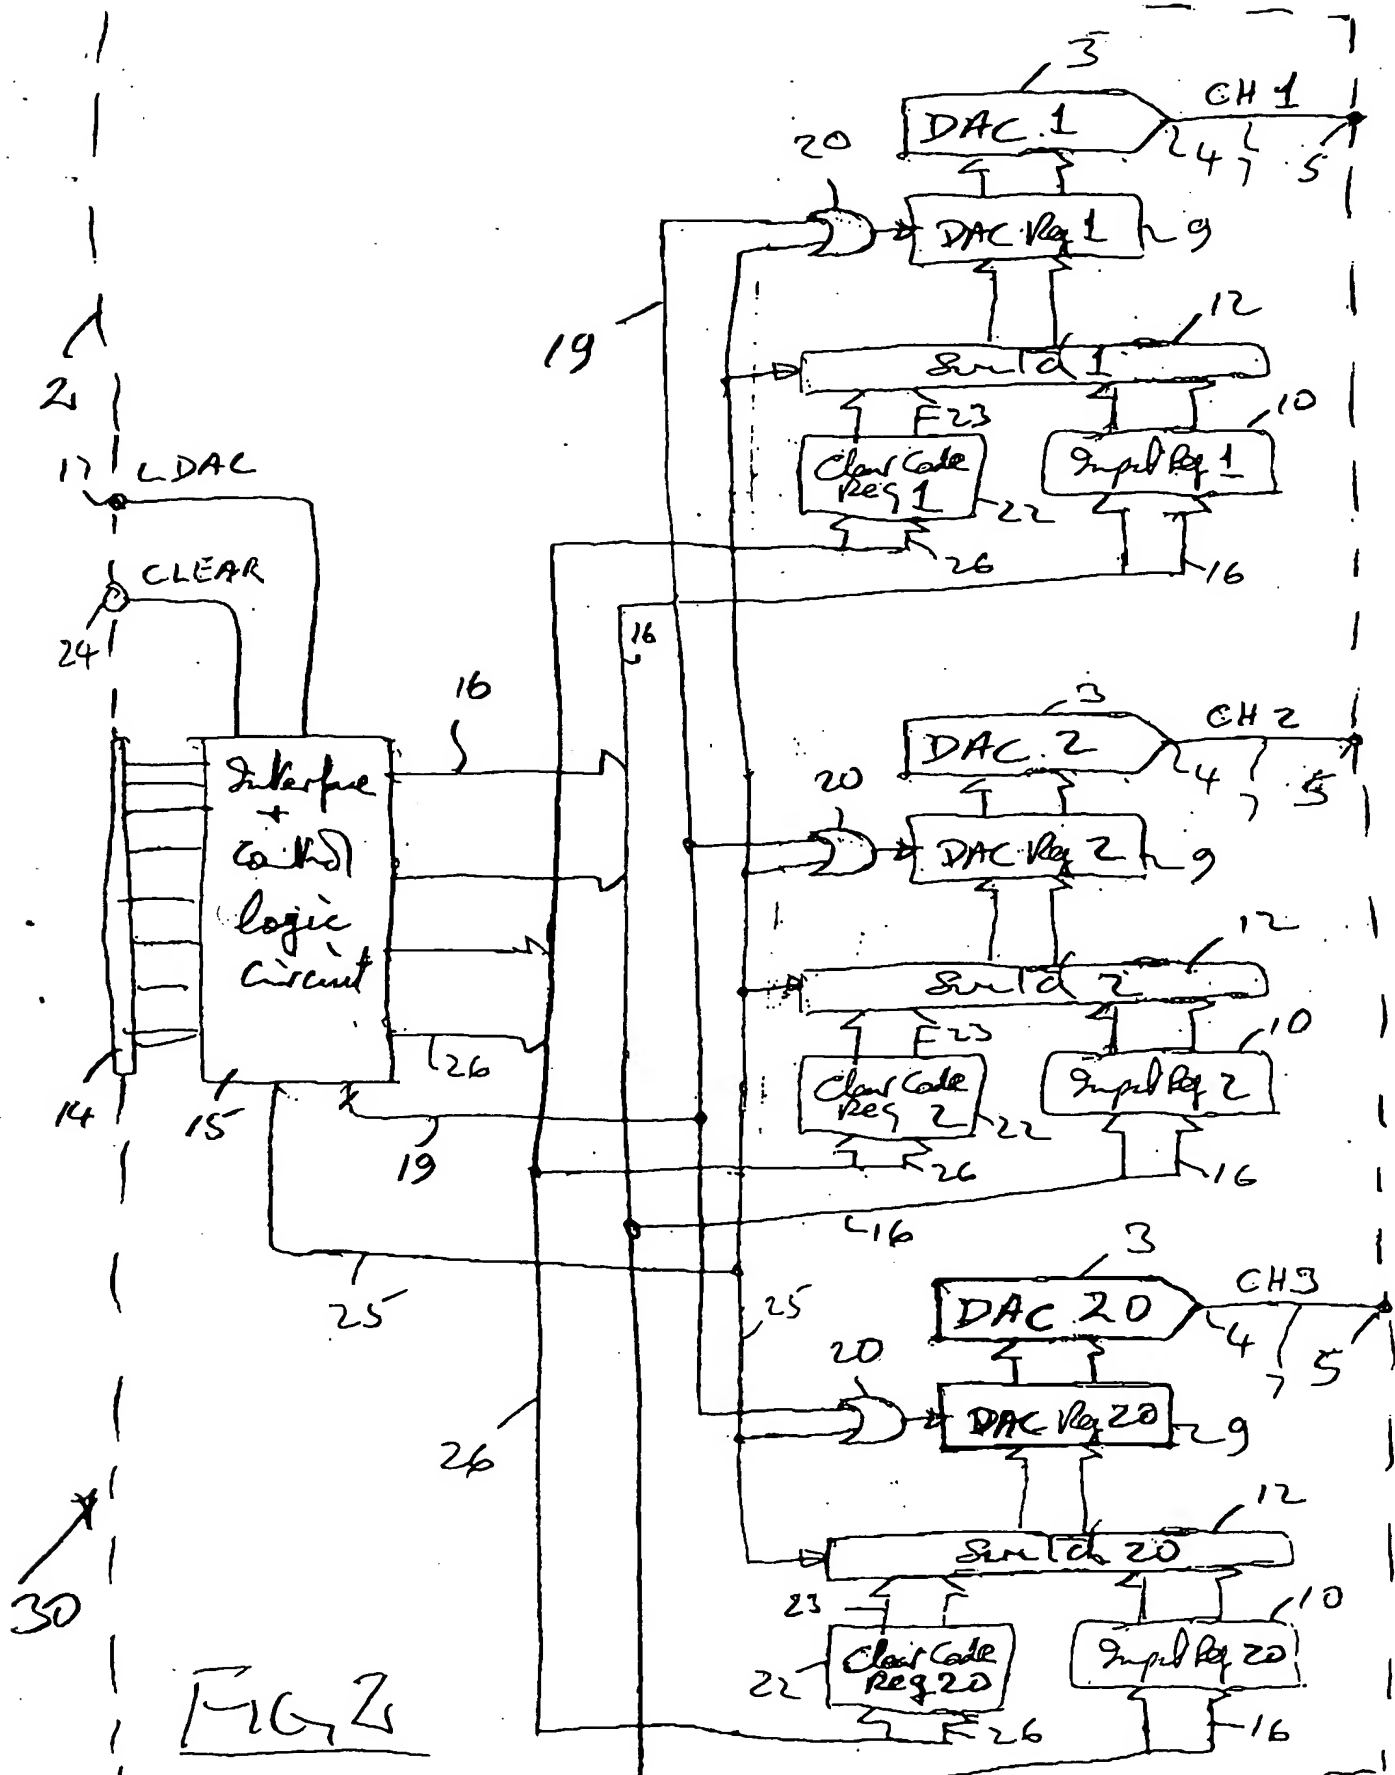 3
CH 1
DAC. 1
4
7
5
20
DAC Reg 1
9
19
12
Switch 1
23
10
Clear Code
Reg 1
22
Input Reg 1
26
16
2
17
LDAC
CLEAR
24
16
16
Interface
+
control
logic
circuit
26
14
15
19
25
3
CH 2
DAC. 2
4
7
5
20
DAC Reg 2
9
12
Switch 2
23
10
Clear Code
Reg 2
22
Input Reg 2
26
16
16
3
CH3
DAC 20
4
7
5
25
20
DAC Reg 20
9
26
12
Switch 20
23
10
Clear Code
Reg 20
22
Input Reg 20
26
16
30
FIG 2